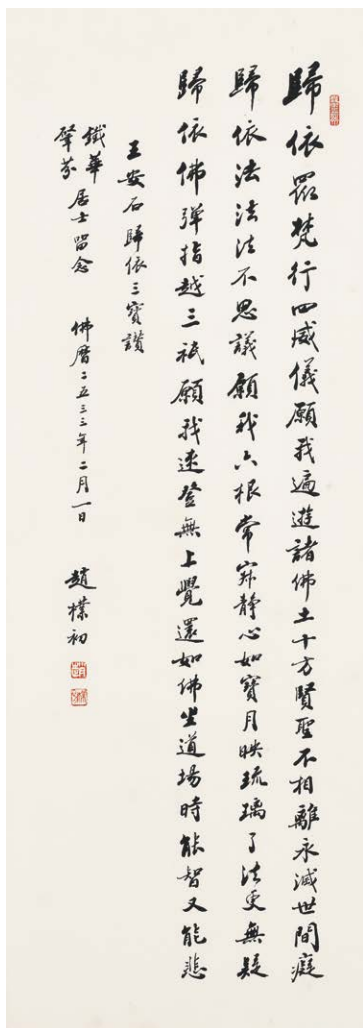 歸依眾梵行四威儀願我遍遊諸佛土十方賢聖不相離永滅世間癡
歸依法法法不思議願我六根常寂靜心如寶月映琉璃了法更無疑
歸依佛彈指越三祇願我速登無上覺還如佛坐道場時能智又能悲
王安石歸依三寶讚
鐵華
肇芬居士留念 佛曆二五三三年二月一日 趙樸初